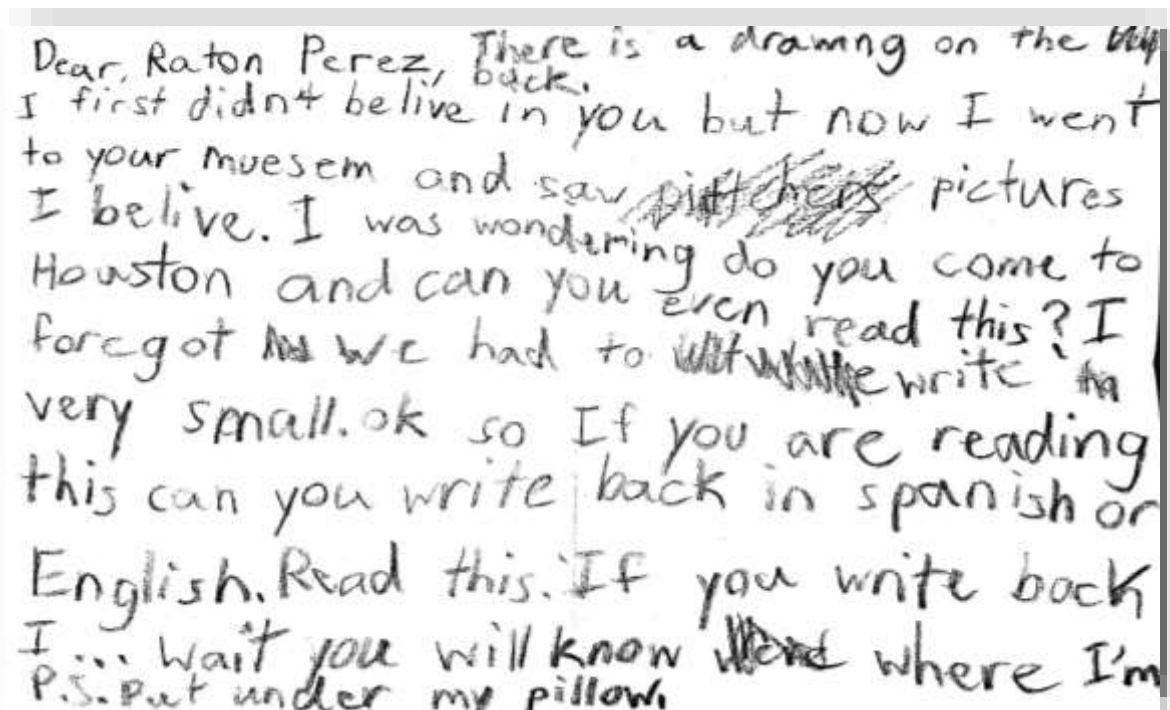 Dear, Raton Perez, There is a drawing on the
back.
I first didn't belive in you but now I went
to your muesem and saw pictures
I belive. I was wondering do you come to
Houston and can you even read this? I
foregot we had to write
very small. ok so If you are reading
this can you write back in spanish or
English. Read this. If you write back
I... wait you will know where I'm
P.S. Put under my pillow.